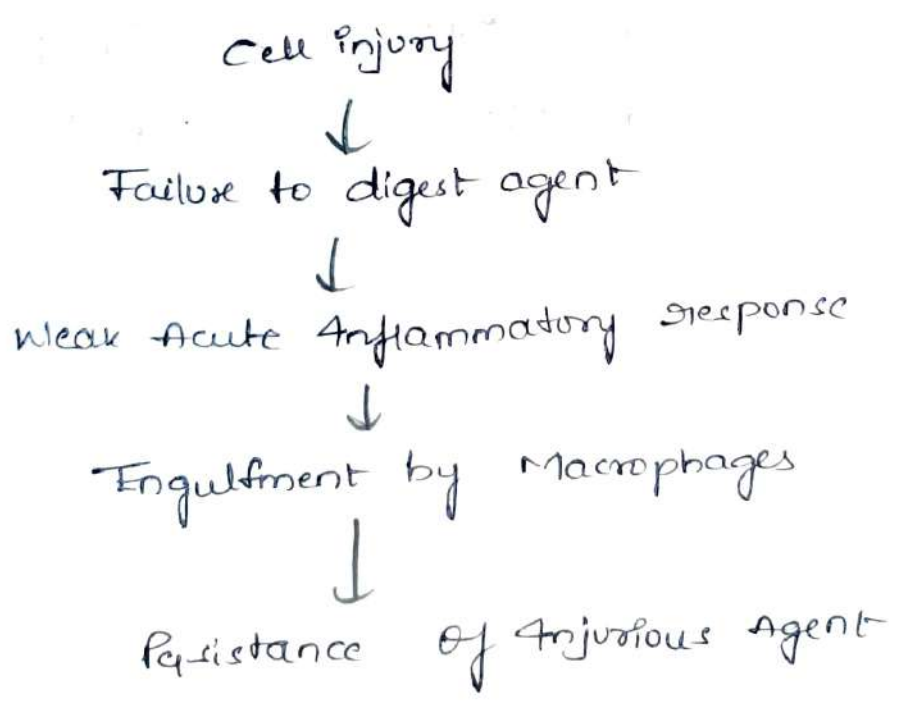 Cell injury
↓
Failure to digest agent
↓
Weak Acute Inflammatory response
↓
Engulfment by Macrophages
↓
Persistance of Injurious Agent